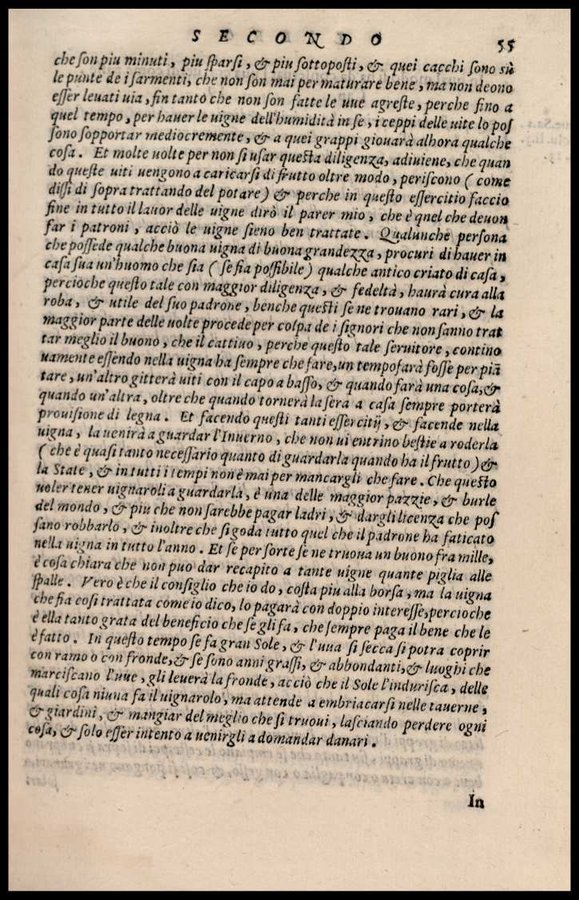 SECONDO 55
che son piu minuti, piu sparsi, & piu sottoposti, & quei cacchi sono sù
le punte de i sarmenti, che non son mai per maturare bene, ma non deono
esser leuati uia, fin tanto che non son fatte le uue agreste, perche fino a
quel tempo, per hauer le uigne dell'humidità in se, i ceppi delle uite lo pos
sono sopportar mediocremente, & a quei grappi giouarà alhora qualche
cosa. Et molte uolte per non si usar questa diligenza, adiuiene, che quan
do queste uiti uengono a caricarsi di frutto oltre modo, periscono ( come
dissi di sopra trattando del potare) & perche in questo essercitio faccio
fine in tutto il lauor delle uigne dirò il parer mio, che è quel che deuon
far i patroni, acciò le uigne sieno ben trattate. Qualunche persona
che possede qualche buona uigna di buona grandezza, procuri di hauer in
casa sua un'huomo che sia ( se fia possibile) qualche antico criato di casa,
percioche questo tale con maggior diligenza, & fedeltà, haurà cura alla
roba, & utile del suo padrone, benche questi se ne trouano rari, & la
maggior parte delle uolte procede per colpa de i signori che non sanno trat
tar meglio il buono, che il cattiuo, perche questo tale seruitore, contino
uamente essendo nella uigna ha sempre che fare, un tempo farà fosse per piā
tare, un'altro gitterà uiti con il capo a basso, & quando farà una cosa, &
quando un'altra, oltre che quando tornerà la sera a casa sempre porterà
prouisione di legna. Et facendo questi tanti essercitij, & facende nella
uigna, la uenirà a guardar l'Inuerno, che non ui entrino bestie a roderla
( che è quasi tanto necessario quanto di guardarla quando ha il frutto) &
la State, & in tutti i tempi non è mai per mancargli che fare. Che questo
uoler tener uignaroli a guardarla, è una delle maggior pazzie, & burle
del mondo, & piu che non sarebbe pagar ladri, & dargli licenza che pos
sano robbarlo, & inoltre che si goda tutto quel che il padrone ha faticato
nella uigna in tutto l'anno. Et se per sorte se ne truoua un buono fra mille,
è cosa chiara che non puo dar recapito a tante uigne quante piglia alle
spalle. Vero è che il consiglio che io do, costa piu alla borsa, ma la uigna
che fia cosi trattata come io dico, lo pagarà con doppio interesse, percioche
è ella tanto grata del beneficio che se gli fa, che sempre paga il bene che le
è fatto. In questo tempo se fa gran Sole, & l'uua si secca si potra coprir
con ramo o con fronde, & se sono anni grassi, & abbondanti, & luoghi che
marciscano l'uue, gli leuerà la fronde, acciò che il Sole l'indurisca, delle
quali cosa niuna fa il uignarolo, ma attende a embriacarsi nelle tauerne,
& giardini, & mangiar del meglio che si truoui, lasciando perdere ogni
cosa, & solo esser intento a uenirgli a domandar danari.
In